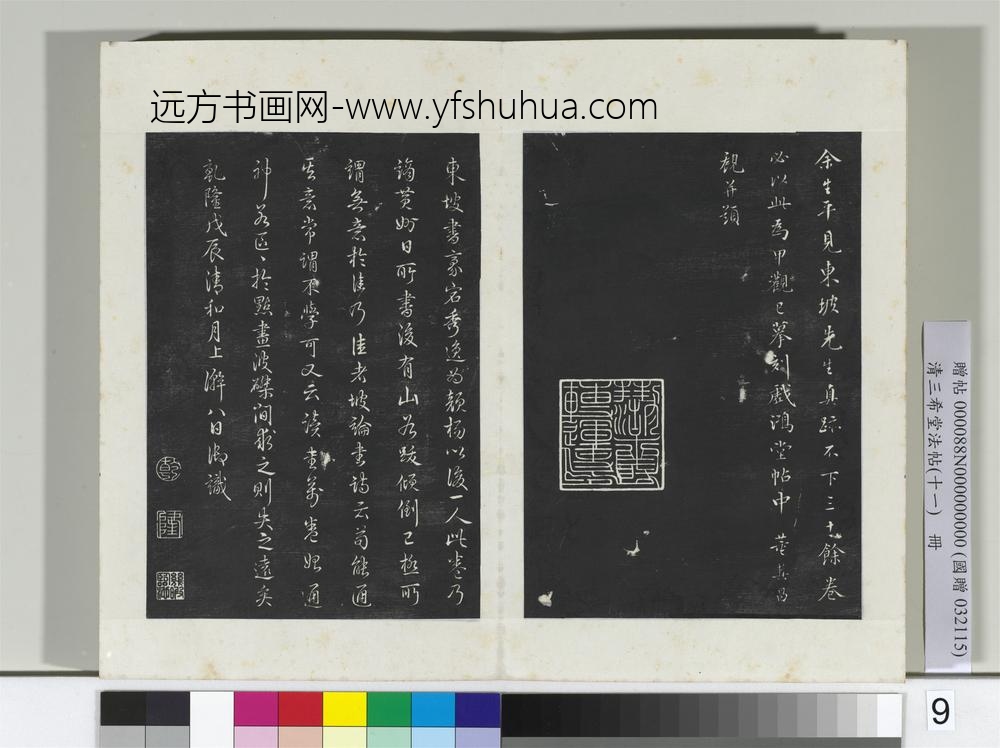 远方书画网-www.yfshuhua.com
余生平見東坡先生真跡不下三十餘卷
必以此為甲觀已摹刻戲鴻堂帖中 董其昌
觀并題
東坡書豪宕秀逸為顏楊以後一人此卷乃
謫黄州日所書後有山谷跋傾倒已極所
謂無意於佳乃佳者坡論書詩云苟能通
其意常謂不學可又云讀書萬卷始通
神若區〻於點畫波磔間求之則失之遠矣
乾隆戊辰清和月上澣八日御識
乾
隆
贈帖 000088N000000000 (國贈 032115)
清三希堂法帖(十一) 冊
9